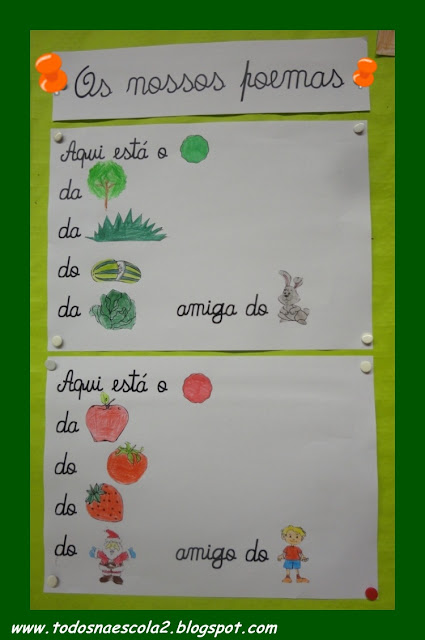 Os nossos poemas
Aqui está o
da
da
do
da amiga do
Aqui está o
da
do
do
do amigo do
www.todosnaescola2.blogspot.com